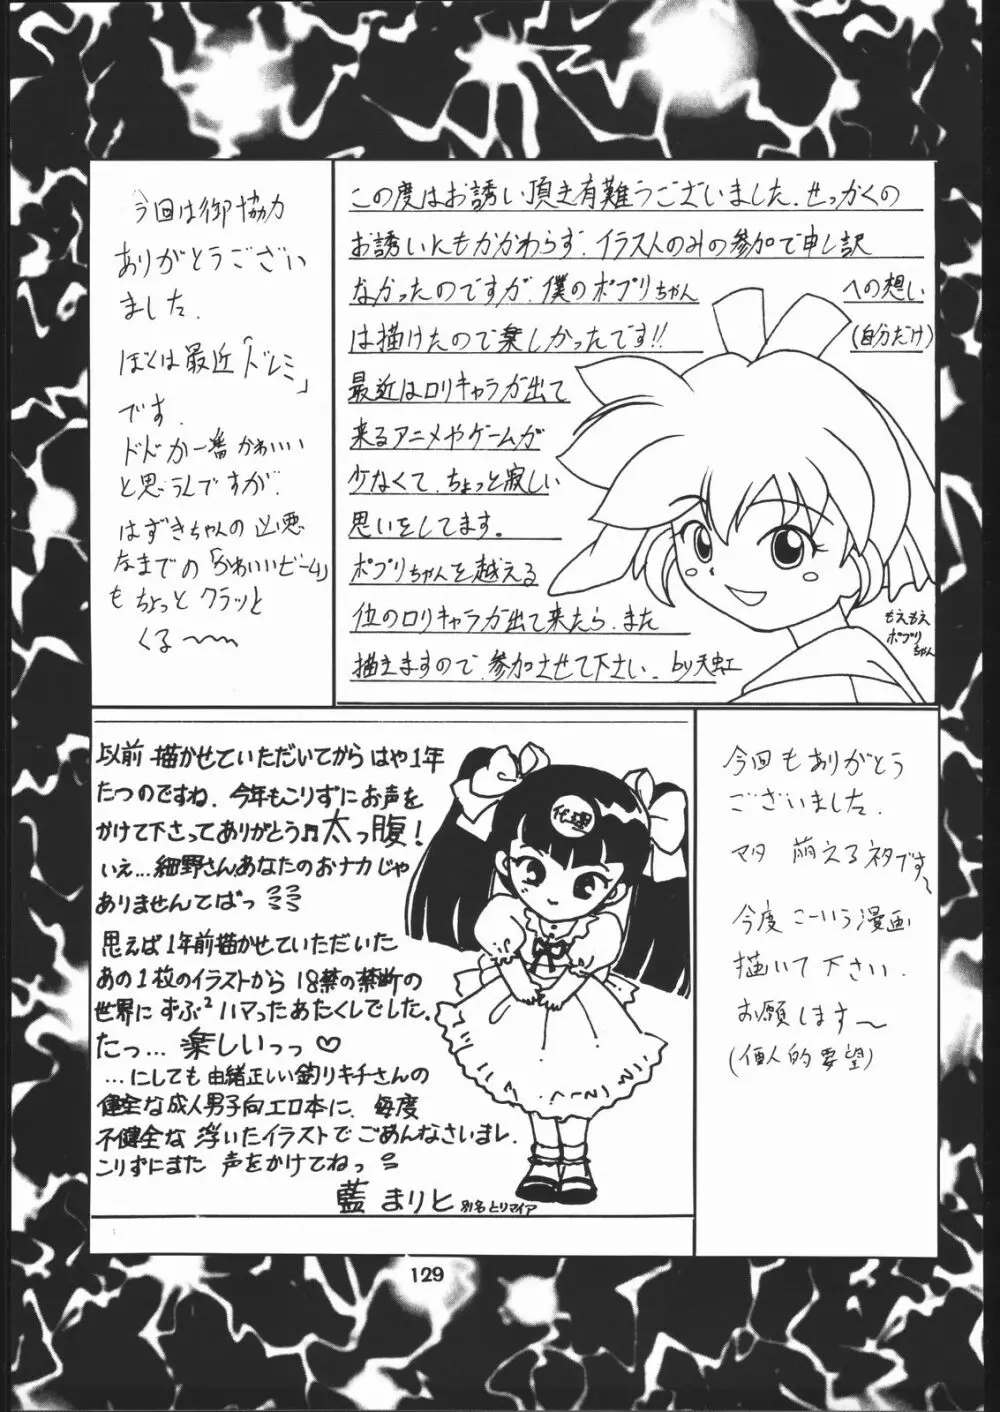 今回は御協力
ありがとうござい
ました.
ぼくは最近「ドレミ」
です.
ドドが一番かわいい
と思うんですが.
はずきちゃんの凶悪
なまでの「かわいいビーム」
も ちょっと クラッと
くる〜〜
この度はお誘い頂き有難うございました.せっかくの
お誘いにもかかわらず.イラストのみの参加で申し訳
なかったのですが.僕のポプリちゃん
への想い
(自分だけ)
は描けたので楽しかったです!!
最近はロリキャラが出て
来るアニメやゲームが
少なくて.ちょっと寂しい
思いをしてます.
ポプリちゃんを越える
位のロリキャラが出て来たら.また
描きますので.参加させて下さい. by天虹
もえもえ
ポプリ
ちゃん
以前 描かせていただいてから はや1年
たつのですね. 今年もこりずにお声を
かけて下さってありがとう♬太っ腹!
いえ…細野さんあなたのおナカじゃ
ありませんてばっ
思えば1年前描かせていただいた
あの1枚のイラストから 18禁の禁断の
世界に ずぶ²ハマったあたくしでした.
たっ… 楽しいっっ♡
…にしても 由緒正しい釣りキチさんの
健全な成人男子向エロ本に. 毎度
不健全な 浮いたイラストで ごめんなさいまし.
こりずにまた 声をかけてねっ
藍 まりと 別名とリマイア
代理
今回もありがとう
ございました.
マタ 萌えるネタです〜
今度 こーいう漫画
描いて 下さい.
お願します〜
(個人的要望)
129